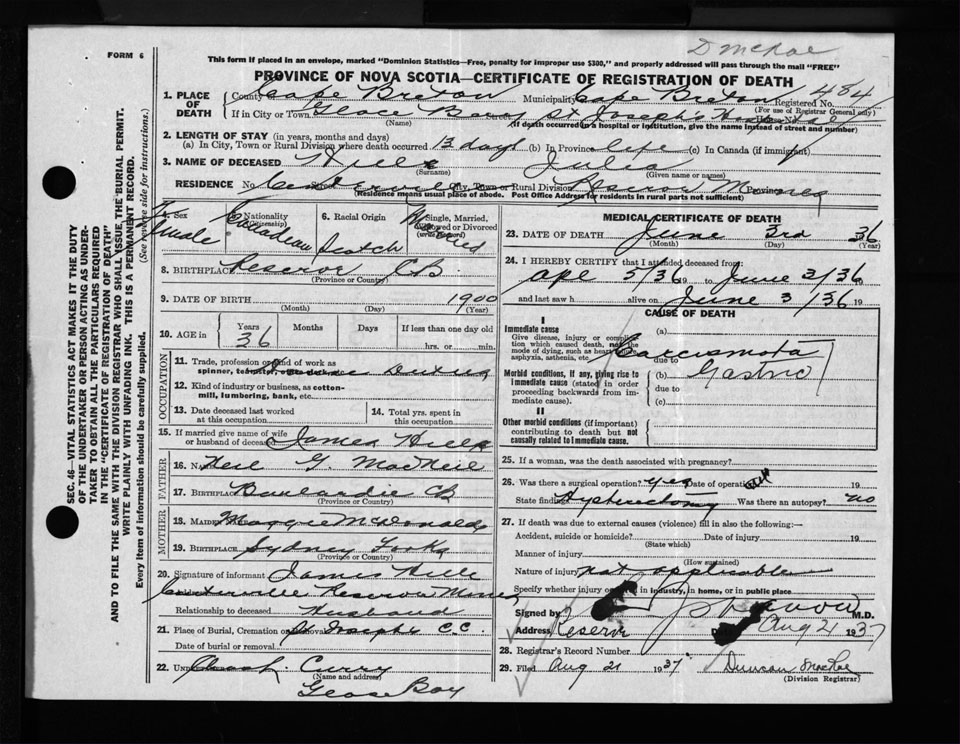 D McRae
FORM 6
This form if placed in an envelope, marked "Dominion Statistics—Free, penalty for improper use $300," and properly addressed will pass through the mail "FREE"
PROVINCE OF NOVA SCOTIA—CERTIFICATE OF REGISTRATION OF DEATH
1. PLACE OF DEATH County Cape Breton Municipality Cape Breton Registered No. 484
(For use of Registrar General only)
If in City or Town Glace Bay St Josephs Hospital
(Name) (If death occurred in a hospital or institution, give the name instead of street and number)
2. LENGTH OF STAY (in years, months and days)
(a) In City, Town or Rural Division where death occurred 13 days (b) In Province life (c) In Canada (if immigrant)
3. NAME OF DECEASED Julia
(Given name or names)
RESIDENCE No. Centerville City, Town or Rural Division Reserve Mines Province
(Residence means usual place of abode. Post Office Address for residents in rural parts not sufficient)
4. Sex Female
5. Nationality (Citizenship) Canadian
6. Racial Origin Scotch
7. Single, Married, Widowed or Divorced (write the word) Married
8. BIRTHPLACE Reserve CB.
(Province or Country)
9. DATE OF BIRTH 1900
(Month) (Day) (Year)
10. AGE in Years 36 Months Days If less than one day old
hrs. or min.
OCCUPATION
11. Trade, profession or kind of work as spinner, teamster, office clerk, etc. House Duties
12. Kind of industry or business, as cotton-mill, lumbering, bank, etc.
13. Date deceased last worked at this occupation
14. Total yrs. spent in this occupation
15. If married give name of wife or husband of deceased James
FATHER
16. Name Neil G. MacNeil
17. Birthplace Boulardie CB
MOTHER
18. Maiden Name Maggie McDonald
19. Birthplace Sydney Forks
(Province or Country)
20. Signature of informant James
Centerville Reserve Mines
Relationship to deceased Husband
21. Place of Burial, Cremation or Removal St Josephs C.C.
Date of burial or removal
22. Undertaker Curry
(Name and address)
Glace Bay
MEDICAL CERTIFICATE OF DEATH
23. DATE OF DEATH June 3rd 36
(Month) (Day) (Year)
24. I HEREBY CERTIFY that I attended deceased from:
Ape 5/36 19 to June 3/36 19
and last saw h alive on June 3/36 19
CAUSE OF DEATH
I
Immediate cause
Give disease, injury or complication which caused death, not the mode of dying, such as heart failure, asphyxia, asthenia, etc.
(a)
due to
Morbid conditions, if any, giving rise to immediate cause (stated in order proceeding backwards from immediate cause).
(b) Gastric
due to
(c)
II
Other morbid conditions (if important) contributing to death but not causally related to immediate cause.
25. If a woman, was the death associated with pregnancy?
26. Was there a surgical operation? yes Date of operation
State findings Hysterectomy Was there an autopsy? no
27. If death was due to external causes (violence) fill in also the following:—
Accident, suicide or homicide? Date of injury 19
(State which)
Manner of injury
(How sustained)
Nature of injury not applicable
Specify whether injury occurred in industry, in home, or in public place
Signed by M.D.
Address Reserve Date Aug 21 1937
28. Registrar's Record Number
29. Filed Aug 21 1937 Duncan MacRae
(Division Registrar)
SEC. 46—VITAL STATISTICS ACT MAKES IT THE DUTY
OF THE UNDERTAKER OR PERSON ACTING AS UNDER-
TAKER TO OBTAIN ALL THE PARTICULARS REQUIRED
IN THE "CERTIFICATE OF REGISTRATION OF DEATH"
AND TO FILE THE SAME WITH THE DIVISION REGISTRAR WHO SHALL ISSUE THE BURIAL PERMIT.
WRITE PLAINLY WITH UNFADING INK. THIS IS A PERMANENT RECORD.
Every item of information should be carefully supplied.
(See reverse side for instructions.)